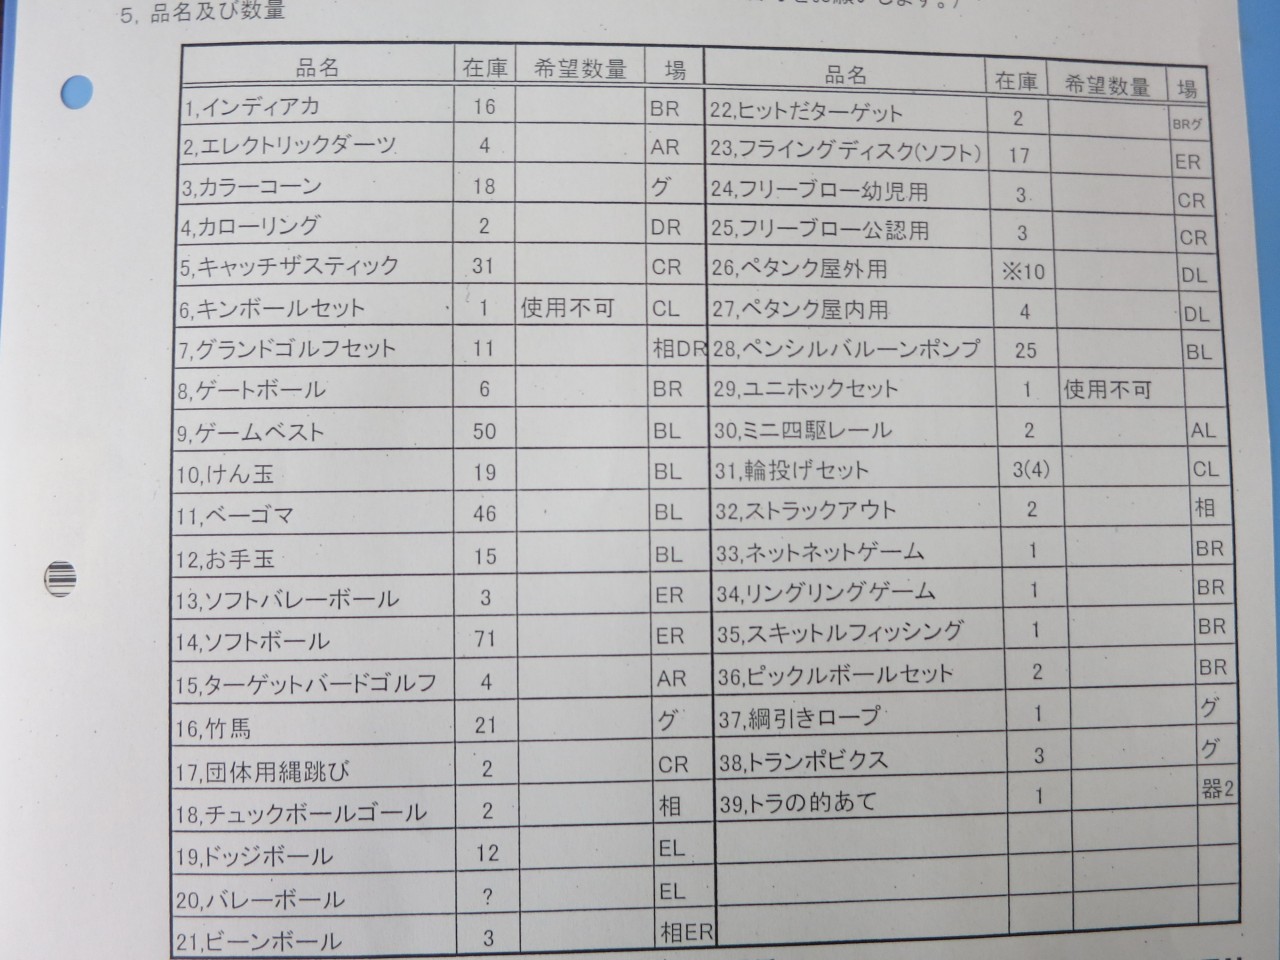 5, 品名及び数量
品名 在庫 希望数量 場 品名 在庫 希望数量 場
1,インディアカ 16 BR 22,ヒットだターゲット 2 BRグ
2,エレクトリックダーツ 4 AR 23,フライングディスク(ソフト) 17 ER
3,カラーコーン 18 グ 24,フリーブロー幼児用 3 CR
4,カローリング 2 DR 25,フリーブロー公認用 3 CR
5,キャッチザスティック 31 CR 26,ペタンク屋外用 ※10 DL
6,キンボールセット 1 使用不可 CL 27,ペタンク屋内用 4 DL
7,グランドゴルフセット 11 相DR 28,ペンシルバルーンポンプ 25 BL
8,ゲートボール 6 BR 29,ユニホックセット 1 使用不可
9,ゲームベスト 50 BL 30,ミニ四駆レール 2 AL
10,けん玉 19 BL 31,輪投げセット 3(4) CL
11,ベーゴマ 46 BL 32,ストラックアウト 2 相
12,お手玉 15 BL 33,ネットネットゲーム 1 BR
13,ソフトバレーボール 3 ER 34,リングリングゲーム 1 BR
14,ソフトボール 71 ER 35,スキットルフィッシング 1 BR
15,ターゲットバードゴルフ 4 AR 36,ピックルボールセット 2 BR
16,竹馬 21 グ 37,綱引きロープ 1 グ
17,団体用縄跳び 2 CR 38,トランポビクス 3 グ
18,チュックボールゴール 2 相 39,トラの的あて 1 器2
19,ドッジボール 12 EL
20,バレーボール ? EL
21,ビーンボール 3 相ER